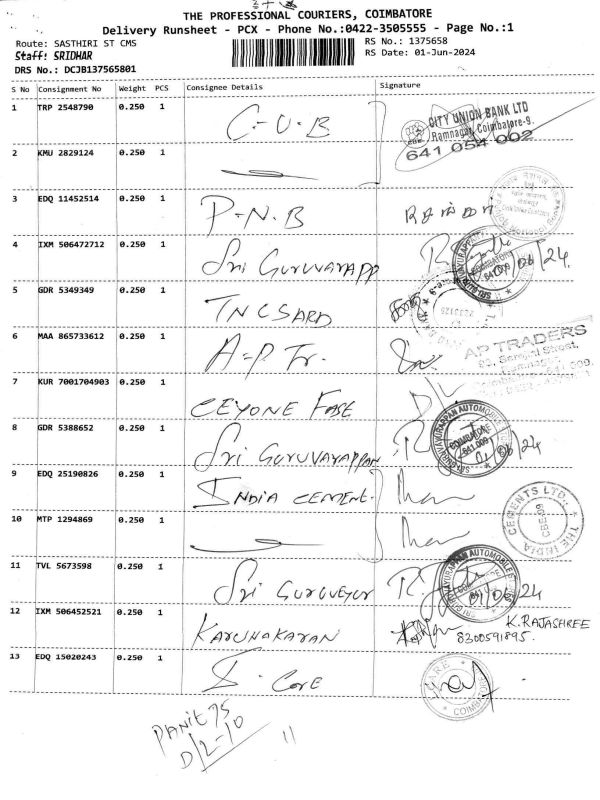 THE PROFESSIONAL COURIERS, COIMBATORE
Delivery Runsheet - PCX - Phone No.:0422-3505555 - Page No.:1
Route: SASTHIRI ST CMS RS No.: 1375658
Staff: SRIDHAR RS Date: 01-Jun-2024
DRS No.: DCJB137565801
S No Consignment No Weight PCS Consignee Details Signature
1 TRP 2548790 0.250 1 C-U-B
CITY UNION BANK LTD
Ramnagar, Coimbatore-9.
641 054 002
2 KMU 2829124 0.250 1
3 EDQ 11452514 0.250 1 P-N-B
4 IXM 506472712 0.250 1 Sri GURUVARAPP /06/24.
COIMBATORE
641 009
5 GDR 5349349 0.250 1 TNCSARD
6 MAA 865733612 0.250 1 A-P Tr.
AP TRADERS
7 KUR 7001704903 0.250 1 CEYONE FASE
8 GDR 5388652 0.250 1 Sri GURUVAYAPPAN
SRI GURUVAYURAPPAN AUTOMOBILE
COIMBATORE
641 009
9 EDQ 25190826 0.250 1 INDIA CEMENT.
10 MTP 1294869 0.250 1
THE INDIA CEMENTS LTD.
CBE-09
11 TVL 5673598 0.250 1 Sri GURUVEYUR /06/24
12 IXM 506452521 0.250 1 KARUNAKARAN K. RAJASHREE
8300591895.
13 EDQ 15020243 0.250 1 I-CARE
CARE
D/2-10
11